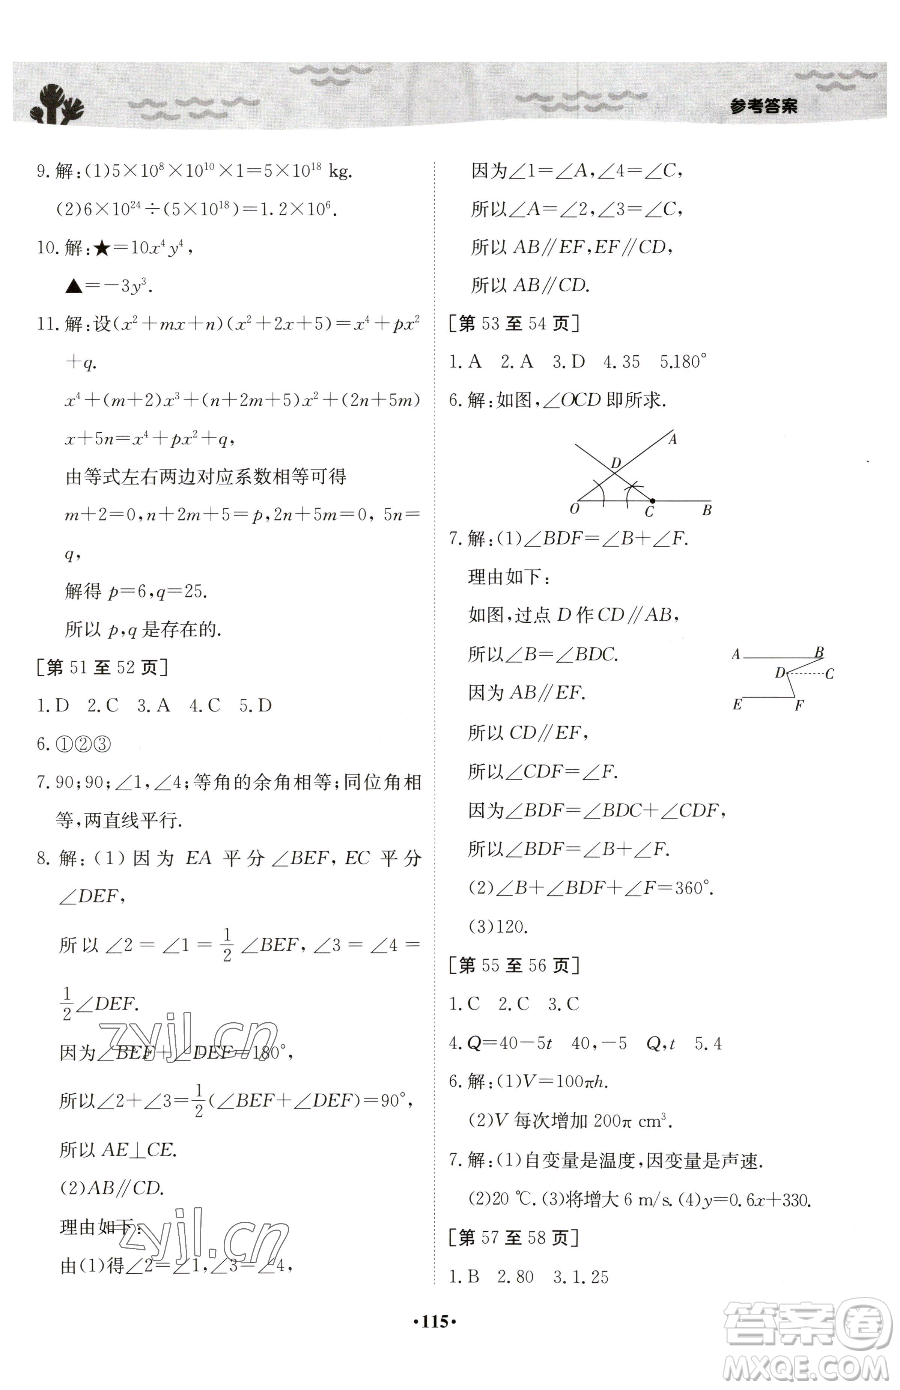 参考答案
9. 解:(1)5×10⁸×10¹⁰×1=5×10¹⁸ kg.
(2)6×10²⁴÷(5×10¹⁸)=1.2×10⁶.
10. 解:★=10x⁴y⁴,
▲=-3y³.
11. 解:设(x²+mx+n)(x²+2x+5)=x⁴+px²
+q.
x⁴+(m+2)x³+(n+2m+5)x²+(2n+5m)
x+5n=x⁴+px²+q,
由等式左右两边对应系数相等可得
m+2=0,n+2m+5=p,2n+5m=0, 5n=
q,
解得 p=6,q=25.
所以 p,q 是存在的.
[第 51 至 52 页]
1. D 2. C 3. A 4. C 5. D
6. ①②③
7. 90;90;∠1,∠4;等角的余角相等;同位角相
等,两直线平行.
8. 解:(1)因为 EA 平分∠BEF,EC 平分
∠DEF,
所以∠2=∠1=1/2∠BEF,∠3=∠4=
1/2∠DEF.
因为∠BEF+∠DEF=180°,
所以∠2+∠3=1/2(∠BEF+∠DEF)=90°,
所以 AE⊥CE.
(2)AB∥CD.
理由如下:
由(1)得∠2=∠1,∠3=∠4,
因为∠1=∠A,∠4=∠C,
所以∠A=∠2,∠3=∠C,
所以 AB∥EF,EF∥CD,
所以 AB∥CD.
[第 53 至 54 页]
1. A 2. A 3. D 4. 35 5.180°
6. 解:如图,∠OCD 即所求.
A
D
O C B
7. 解:(1)∠BDF=∠B+∠F.
理由如下:
如图,过点 D 作 CD∥AB,
所以∠B=∠BDC.
因为 AB∥EF.
所以 CD∥EF,
所以∠CDF=∠F.
因为∠BDF=∠BDC+∠CDF,
所以∠BDF=∠B+∠F.
A B
D C
E F
(2)∠B+∠BDF+∠F=360°.
(3)120.
[第 55 至 56 页]
1. C 2. C 3. C
4. Q=40-5t 40,-5 Q,t 5. 4
6. 解:(1)V=100πh.
(2)V 每次增加 200π cm³.
7. 解:(1)自变量是温度,因变量是声速.
(2)20 ℃.(3)将增大 6 m/s.(4)y=0.6x+330.
[第 57 至 58 页]
1. B 2. 80 3. 1.25
·115·
zyjl.cn
zyjl.cn
答案圈
MXQE.COM